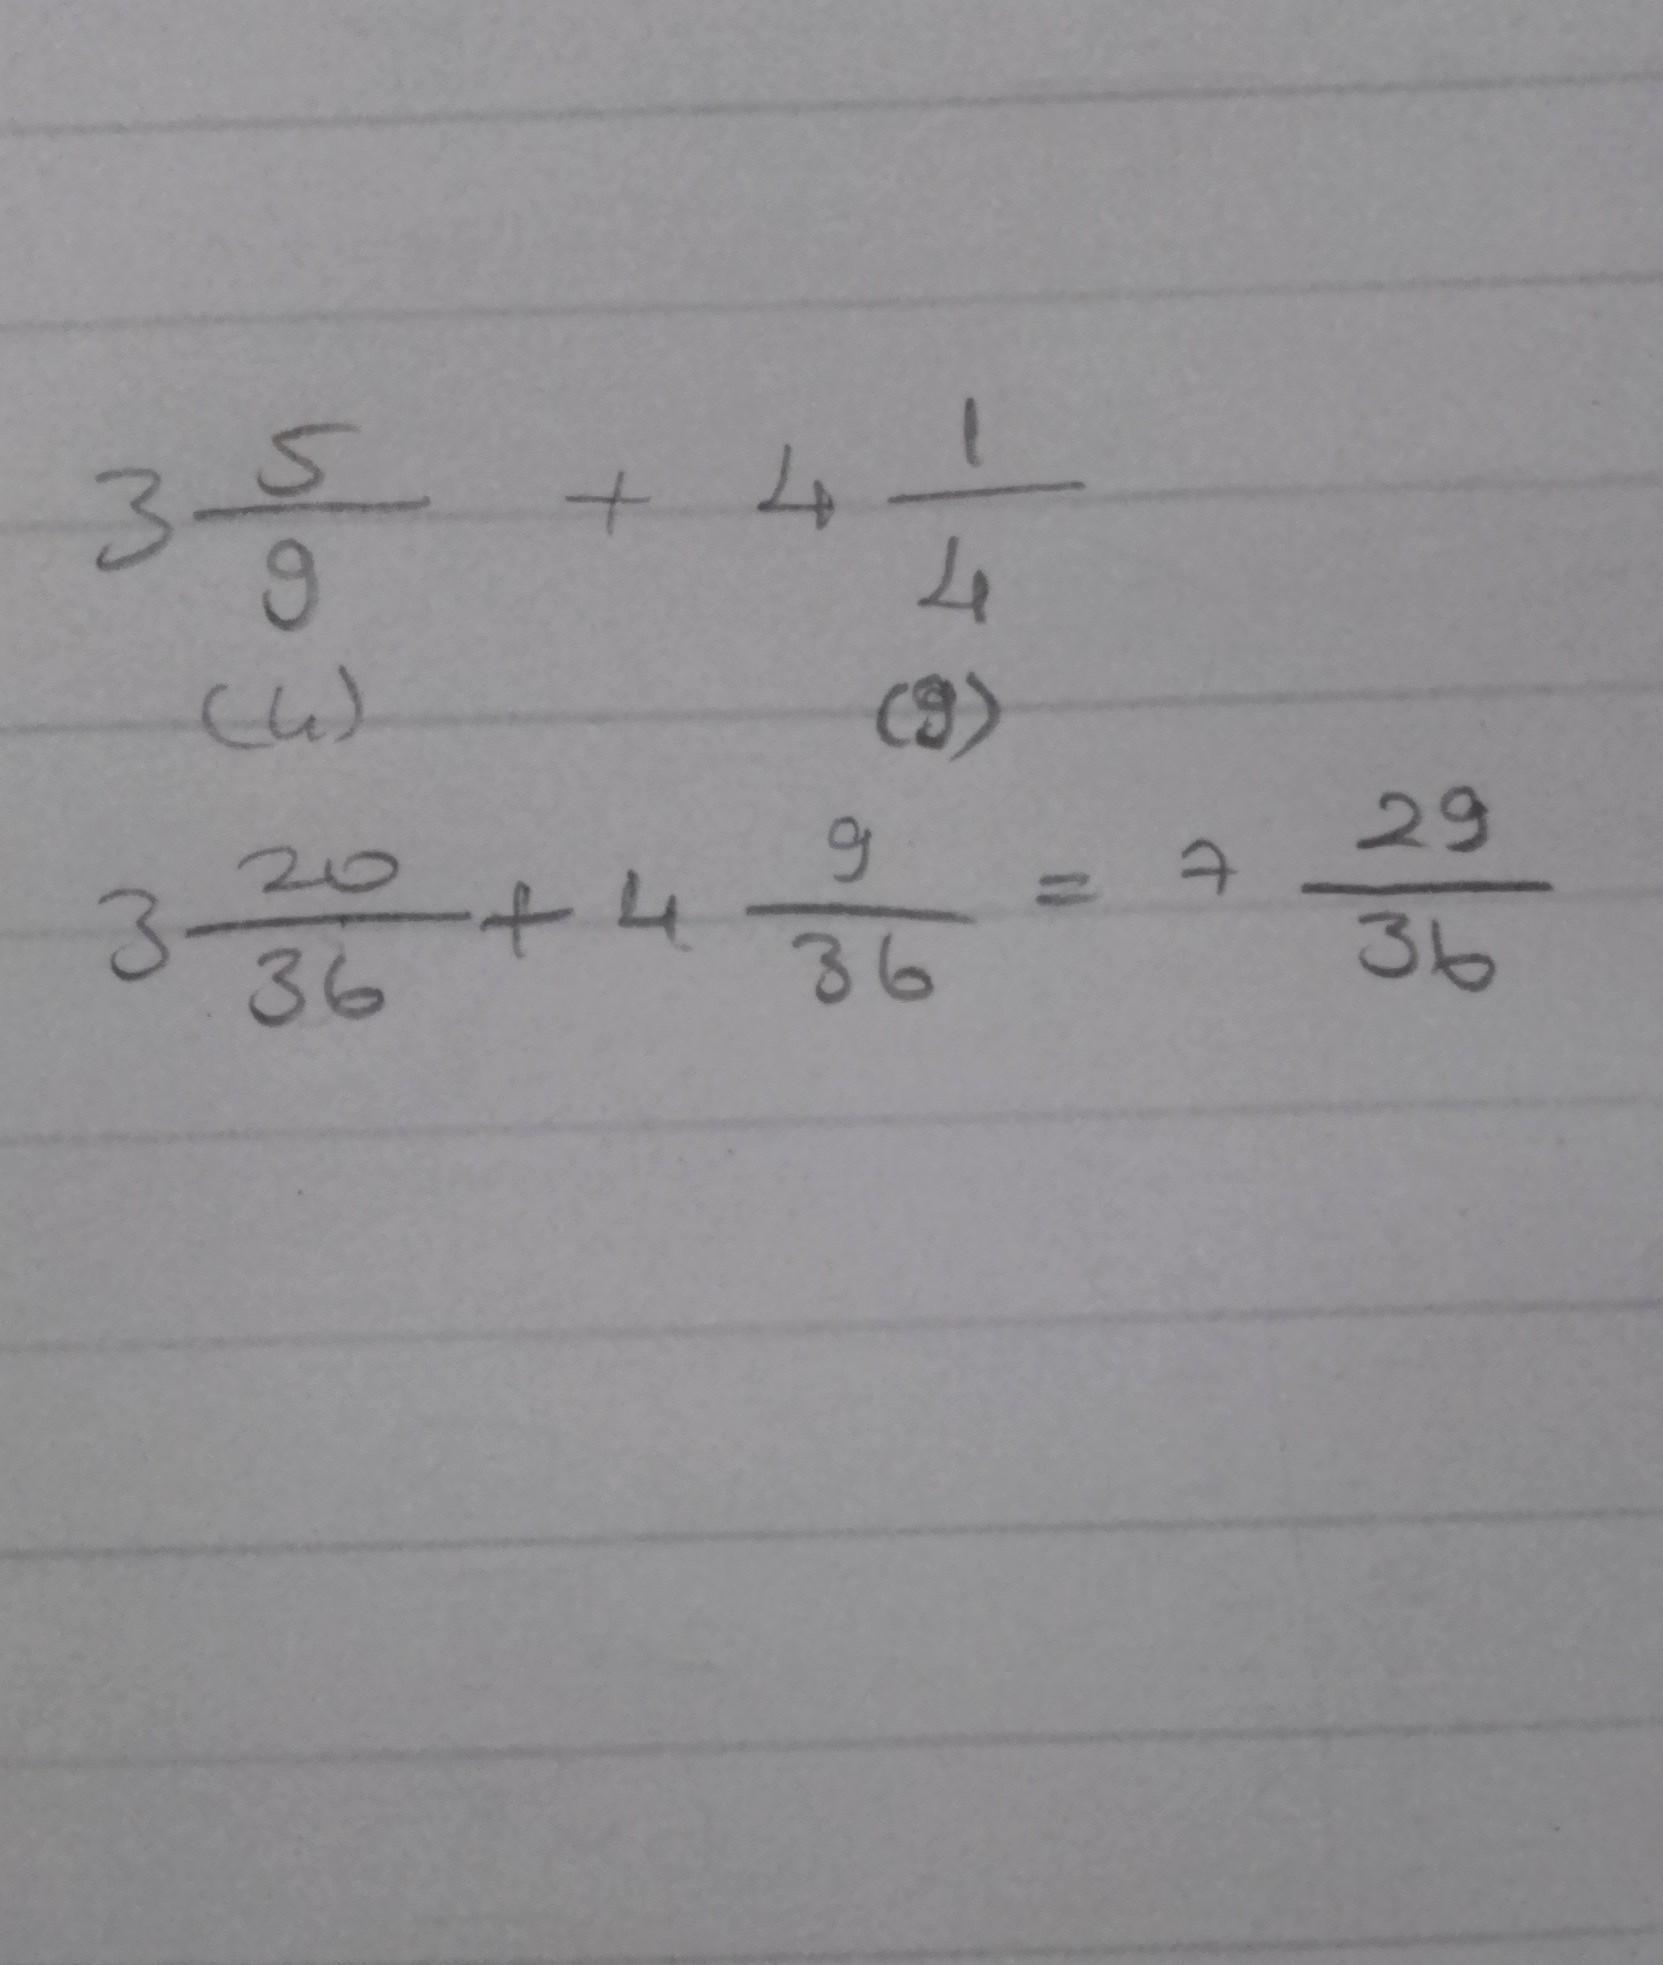 3 5/9 + 4 1/4
(4) (9)
3 20/36 + 4 9/36 = 7 29/36